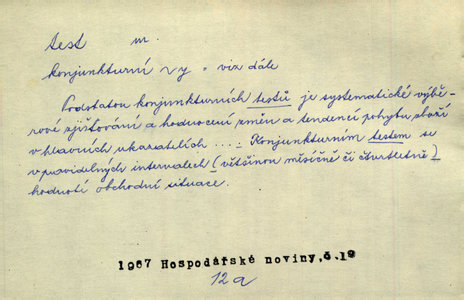 test m.
konjunkturní ~y - viz dále
Podstatou konjunkturních testů je systematické výbě-
rové zjišťování a hodnocení změn a tendencí pohybu zboží
v hlavních ukazatelích ... - Konjunkturním testem se
v pravidelných intervalech (většinou měsíčně či čtvrtletně)
hodnotí obchodní situace.
1967 Hospodářské noviny,č.19
12a